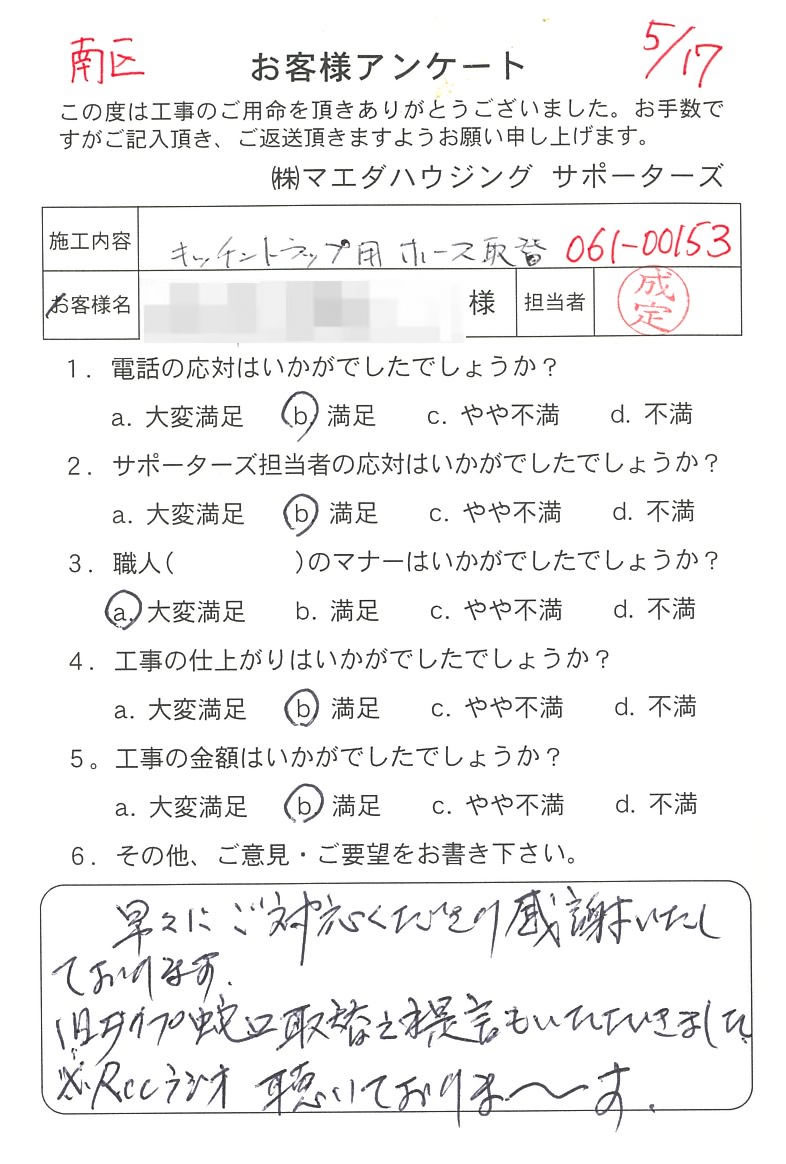 南区
お客様アンケート
5/17
この度は工事のご用命を頂きありがとうございました。お手数で
すがご記入頂き、ご返送頂きますようお願い申し上げます。
㈱マエダハウジング サポーターズ
施工内容 キッチントラップ用 ホース取替 061-00153
お客様名 様 担当者 成定
1. 電話の応対はいかがでしたでしょうか？
a. 大変満足 b. 満足 c. やや不満 d. 不満
2. サポーターズ担当者の応対はいかがでしたでしょうか？
a. 大変満足 b. 満足 c. やや不満 d. 不満
3. 職人( )のマナーはいかがでしたでしょうか？
a. 大変満足 b. 満足 c. やや不満 d. 不満
4. 工事の仕上がりはいかがでしたでしょうか？
a. 大変満足 b. 満足 c. やや不満 d. 不満
5。工事の金額はいかがでしたでしょうか？
a. 大変満足 b. 満足 c. やや不満 d. 不満
6. その他、ご意見・ご要望をお書き下さい。
早々にご対応くださり感謝いたし
ております.
旧タイプ蛇口取替え提言もいただきました
※RCCラジオ 聴いておりま〜す.